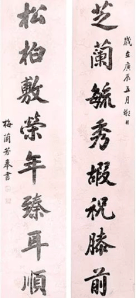 芝蘭毓秀嘏祝膝前
歲在庚辰五月
松柏敷榮年臻耳順
梅蘭芳奉書